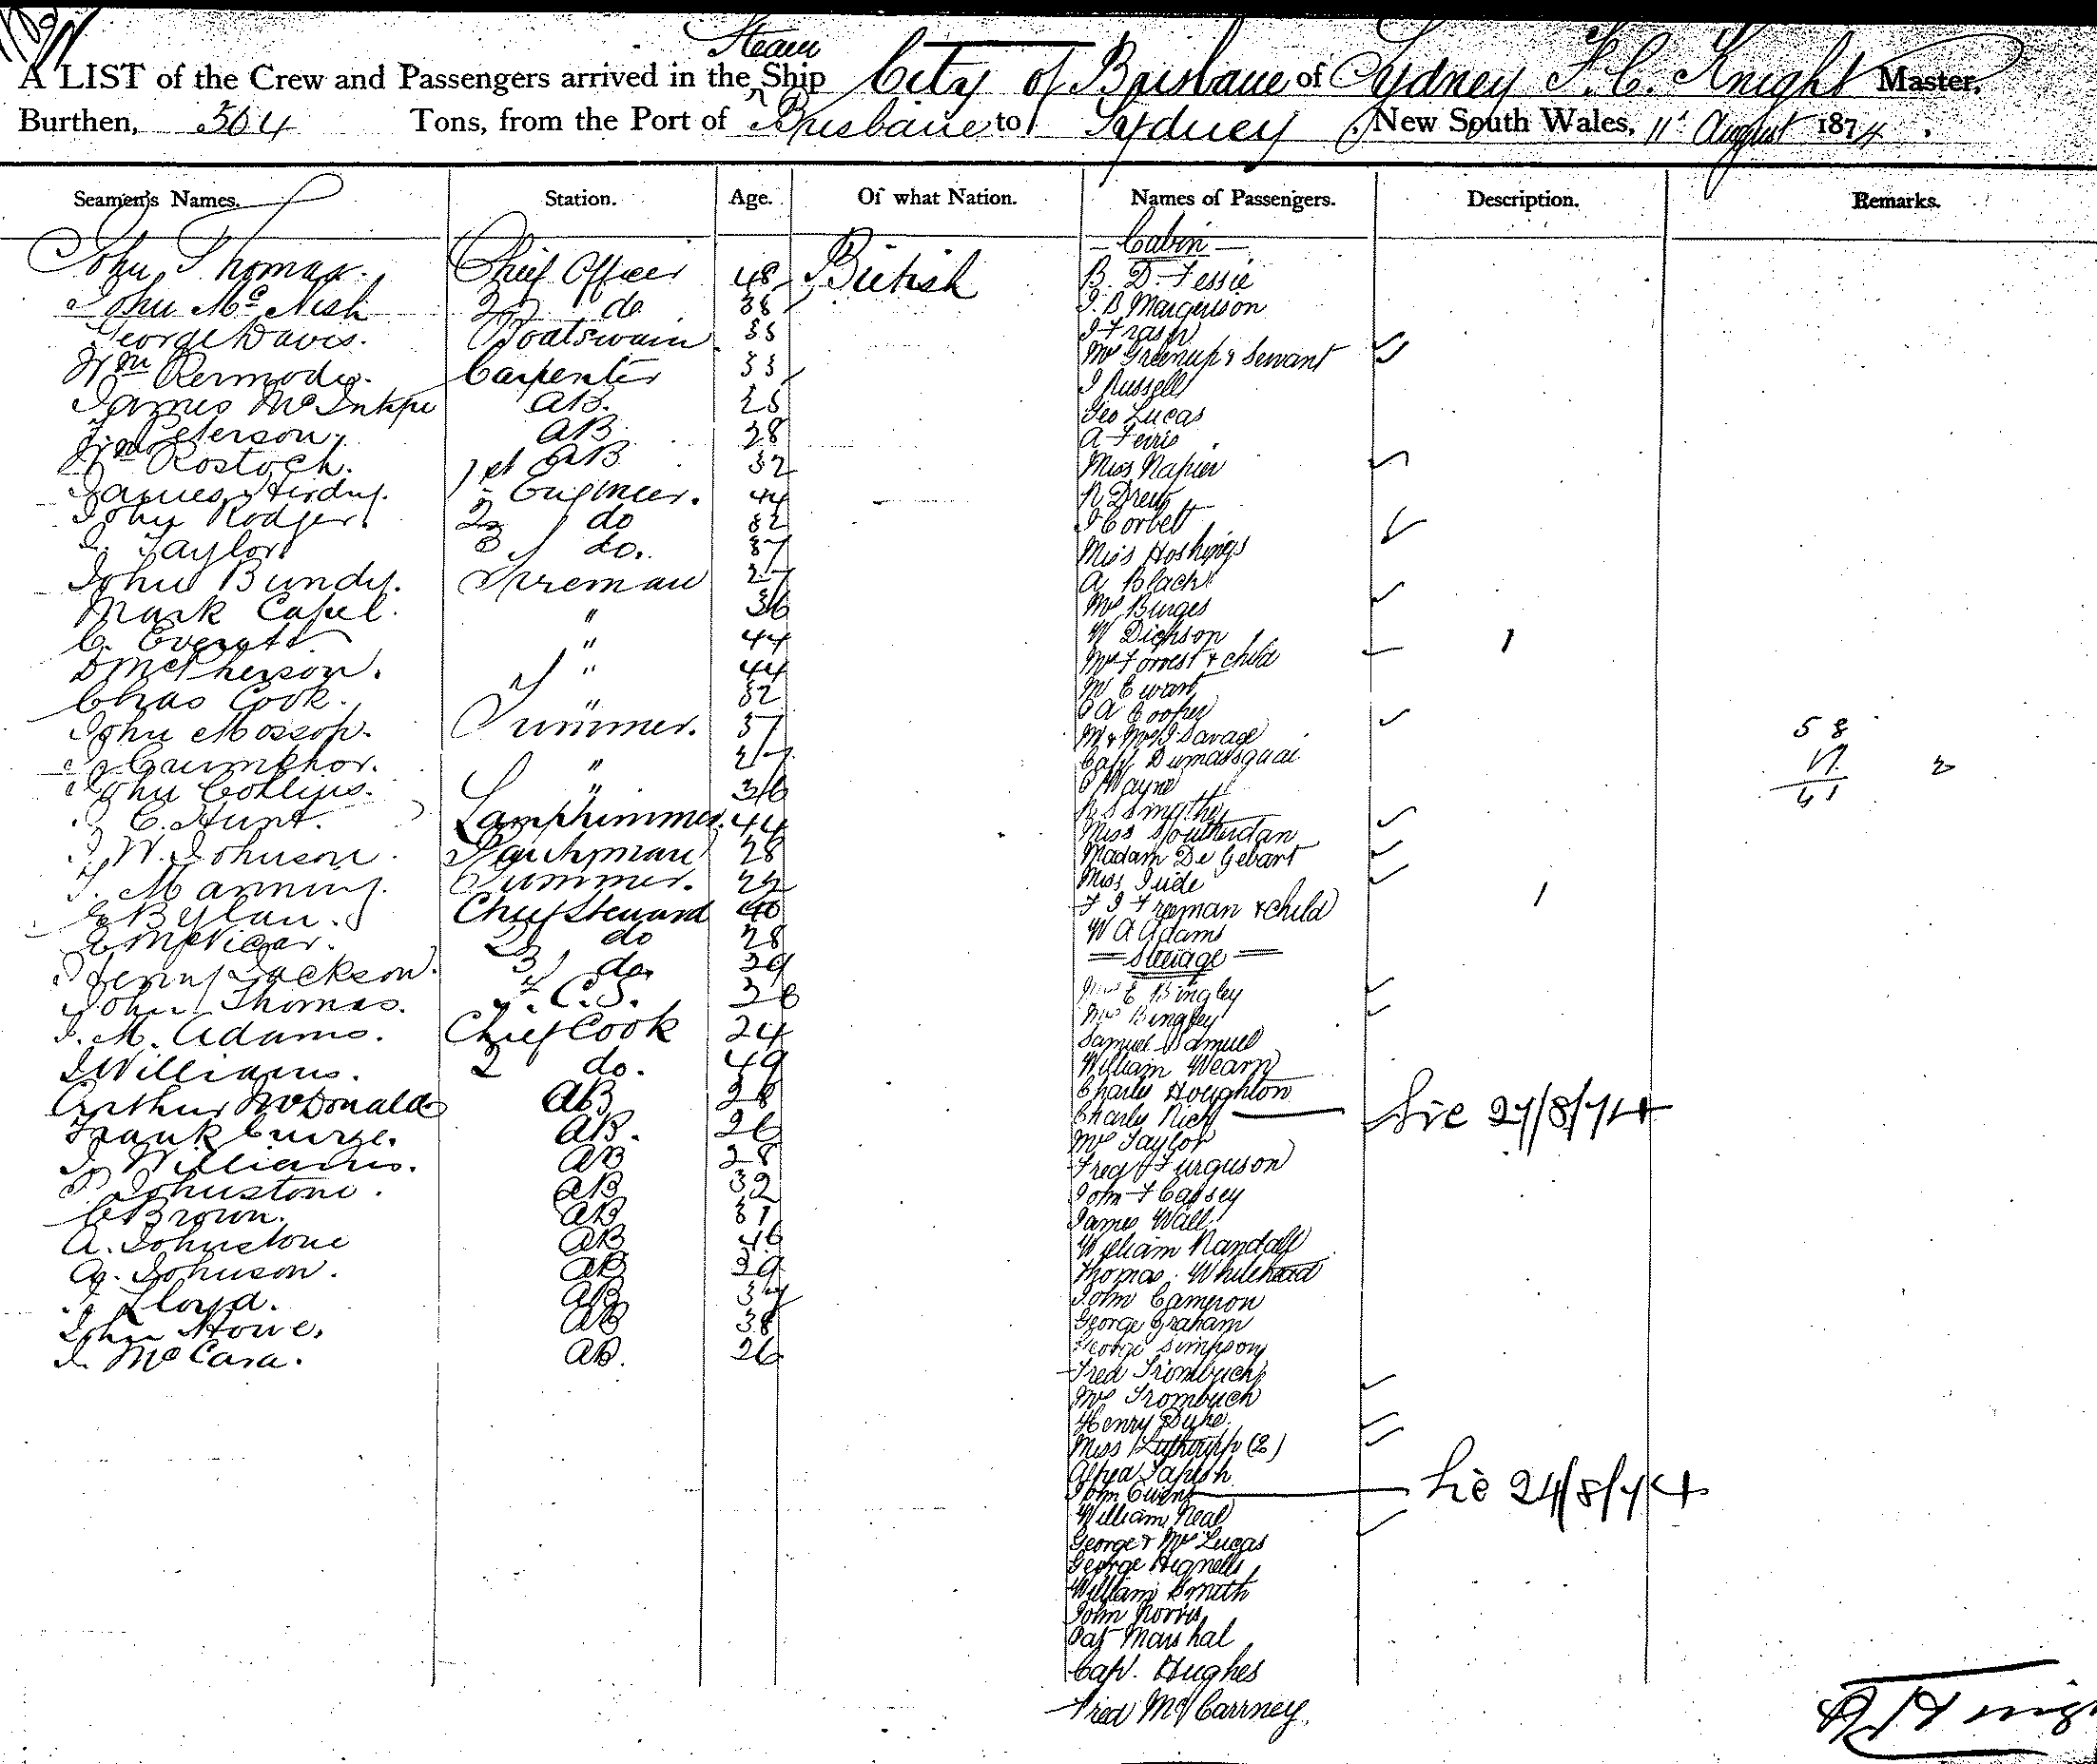 Steam
A LIST of the Crew and Passengers arrived in the Ship City of Brisbane of Sydney F. C. Knight Master,
Burthen, 504 Tons, from the Port of Brisbane to Sydney, New South Wales, 11 August 1874.
Seamen's Names. Station. Age. Of what Nation. Names of Passengers. Description. Remarks.
John Thomas. Chief Officer 48 British
John McNish 2 do 38
George Davis. Boatswain 35
Wm Kermody. Carpenter 33
James McIntyre AB. 25
Peterson. AB 28
Wm Rostock. AB 32
James Hirdy. 1st Engineer. 44
John Rodger. 2 do 32
Taylor 3 do. 37
John Bundy. Fireman 27
Mark Capel. " 36
C. Everatt " 44
D McPherson. " 44
Chas Cook. " 32
John Mossop. Trimmer. 37
" 27
John Collins. " 36
C. Hunt. Lamptrimmer. 44
W. Johnson. 28
T. Manning. Trimmer. 22
Chief Steward 40
E McVicar. 2 do 28
Henry Jackson. 3 do 29
John Thomas. F. C. S.
J. M. Adams. Chief Cook 24
J Williams. 2 do. 49
Arthur McDonald AB 28
Frank AB. 26
J. Williams. AB 28
P Johnstone. AB 32
C Brown. AB 31
A. Johnstone AB 46
A. Johnson. AB 29
Lloyd. AB 37
John Howe. AB 38
J. McCara. AB. 26
— Cabin —
B. D.
J. B Margerison
J Fraser
Mrs Greenup & Servant
J Russell
Geo Lucas
A Ferris
Miss Napier
R Drew
J Corbett
Miss Hoskings
A Black
Mrs Burges
W Dickson
Mrs Forrest & child 1
M Ewart
C A Cooper
Mr & Mrs J Savage
Capt
Wayne
R S Smythe
Miss Southerdan
Madam De Gebart
Miss
F J Freeman & child 1
W A Adams
5 8
17 2
— Steerage —
Mrs E Bingley
Mrs Bingley
Samuel Samuel
William Wearn
Charles Houghton
Charles Rich — 27/8/74
Mrs Taylor
Fred Ferguson
John F Capsey
James Wall
William Randall
Thomas Whitehead
John Cameron
George Graham
George Simpson
Fred Trombuch
Mrs Trombuch
Henry Dyke
Miss (2)
Alfred
John Owens — 24/8/74
William Neal
George & Mrs Lucas
George Hignells
William Smith
John Norris
Pat Marshal
Capt. Hughes
Fred McCarrney